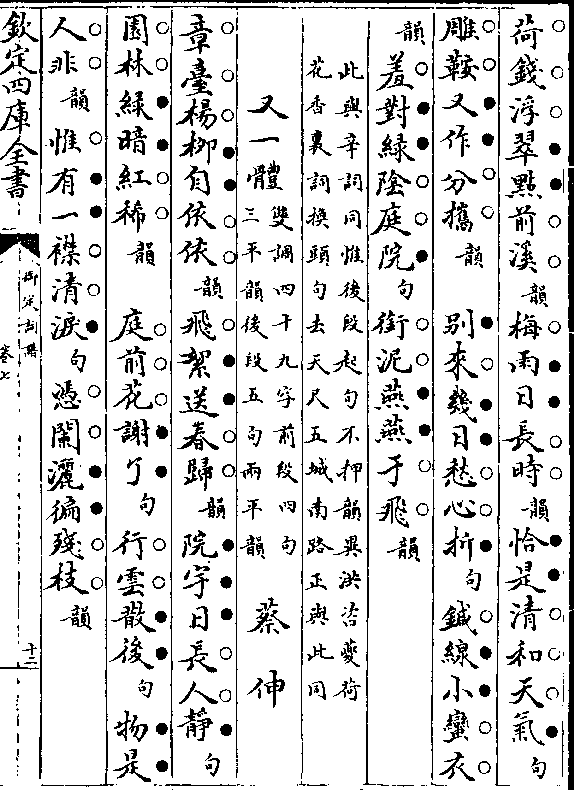 荷錢浮翠點前溪韻梅雨日長時韻恰是清和天氣句
雕鞍又作分攜韻 別來幾日愁心折句鍼線小蠻衣
韻羞對綠陰庭院句銜泥燕燕于飛韻
此與辛詞同惟後段起句不押韻異洪咨夔荷
花香裏詞換頭句去天尺五城南路正與此同
又一體 雙調四十九字前段四句
三平韻後段五句兩平韻 蔡伸
章臺楊柳自依依韻飛絮送春歸韻院宇日長人靜句
園林綠暗紅稀韻 庭前花謝了句行雲散後句物是
人非韻惟有一襟清淚句憑闌灑徧殘枝韻
欽定四庫全書
御定詞譜
卷七
十二